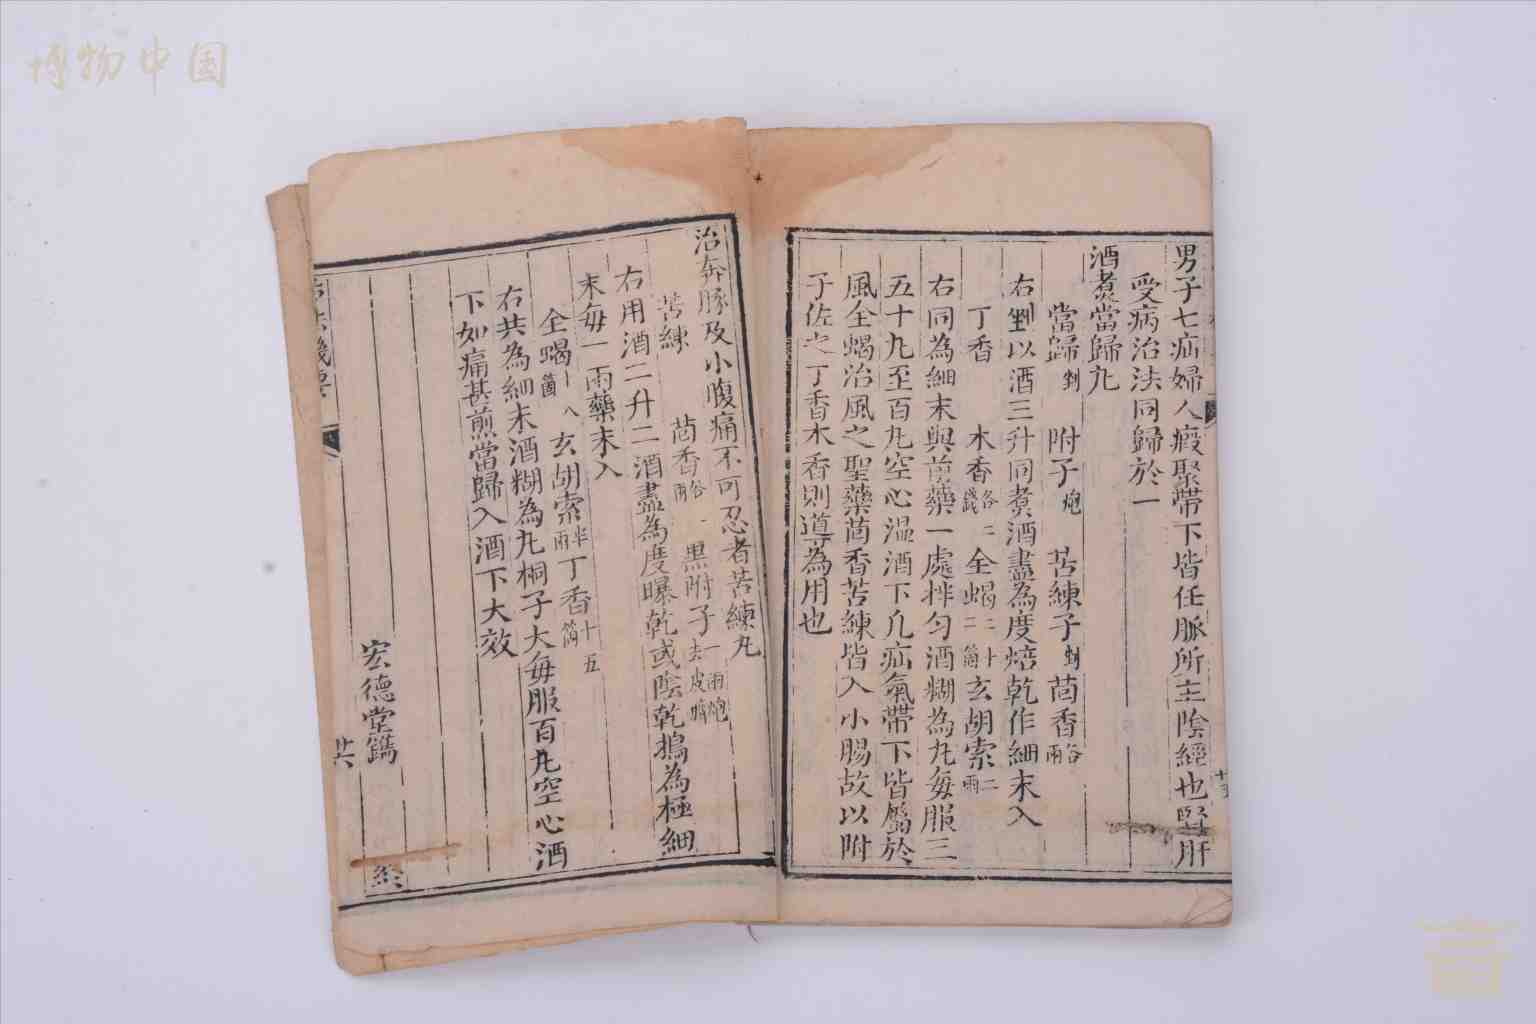 博物中国
男子七疝婦人瘕聚帶下皆任脈所主陰經也腎肝
受病治法同歸於一
酒煮當歸丸
當歸 剉 附子 炮 苦練子 剉 茴香 各一兩
右剉以酒三升同煮酒盡為度焙乾作細末入
丁香 木香 各二錢 全蝎 二十二箇 玄胡索 二兩
右同為細末與前藥一處拌匀酒糊為丸每服三
五十丸至百丸空心温酒下凡疝氣帶下皆屬於
風全蝎治風之聖藥茴香苦練皆入小腸故以附
子佐之丁香木香則導為用也
治奔豚及小腹痛不可忍者苦練丸
苦練 茴香 各二兩 黒附子 一兩炮去皮臍
右用酒二升二酒盡為度曝乾或陰乾搗為極細
末每一兩藥末入
全蝎 十八箇 玄胡索 半兩 丁香 十五箇
右共為細末酒糊為丸桐子大每服百丸空心酒
下如痛甚煎當歸入酒下大效
宏德堂鐫
共
終